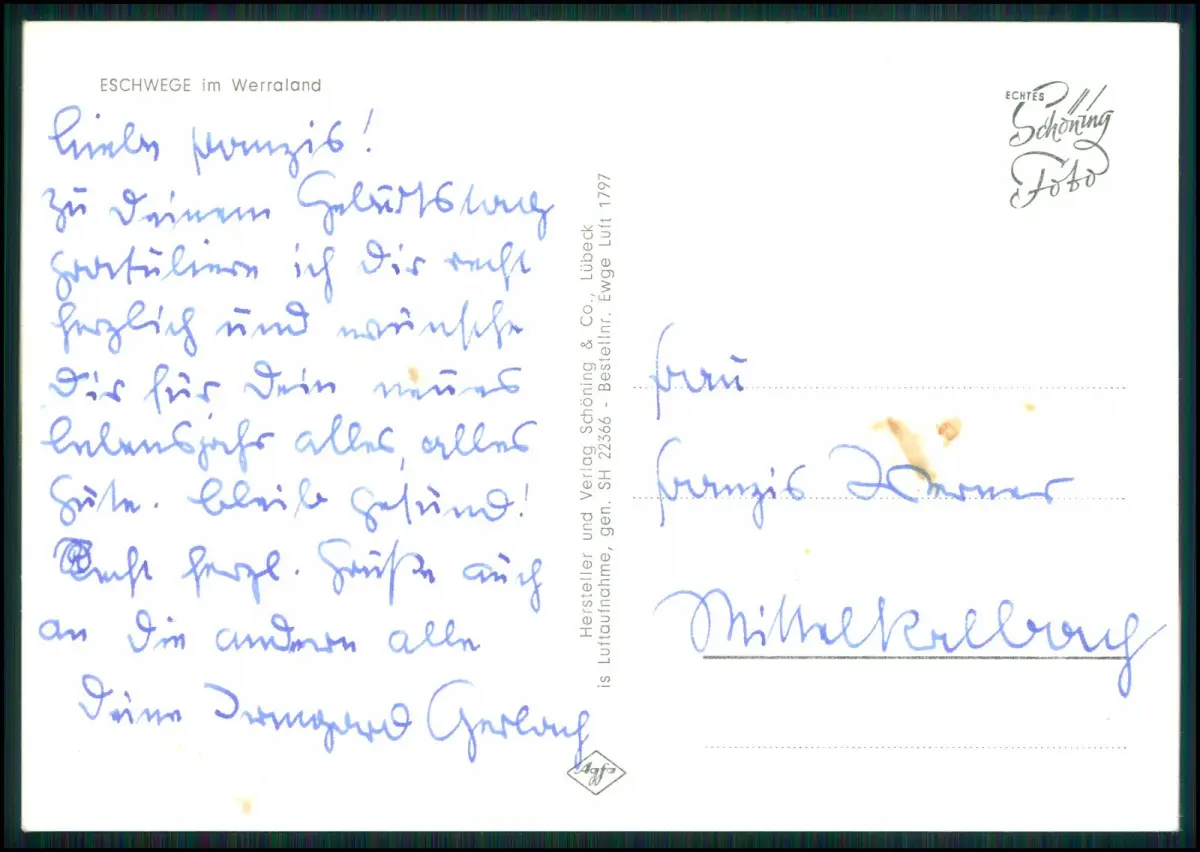 ESCHWEGE im Werraland
Liebe Franzis!
Zu Deinem Geburtstag
gratuliere ich Dir recht
herzlich und wünsche
Dir für Dein neues
Lebensjahr alles, alles
Gute. Bleib gesund!
Recht herzl. Grüße auch
an die andern alle
Deine Irmgard Gerlach
Hersteller und Verlag Schöning & Co., Lübeck
is Luftaufnahme, gen. SH 22366 - Bestellnr. Ewge Luft 1797
Agfa
ECHTES
Schöning
Foto
Frau
Franzis Werner
Mittelkalbach